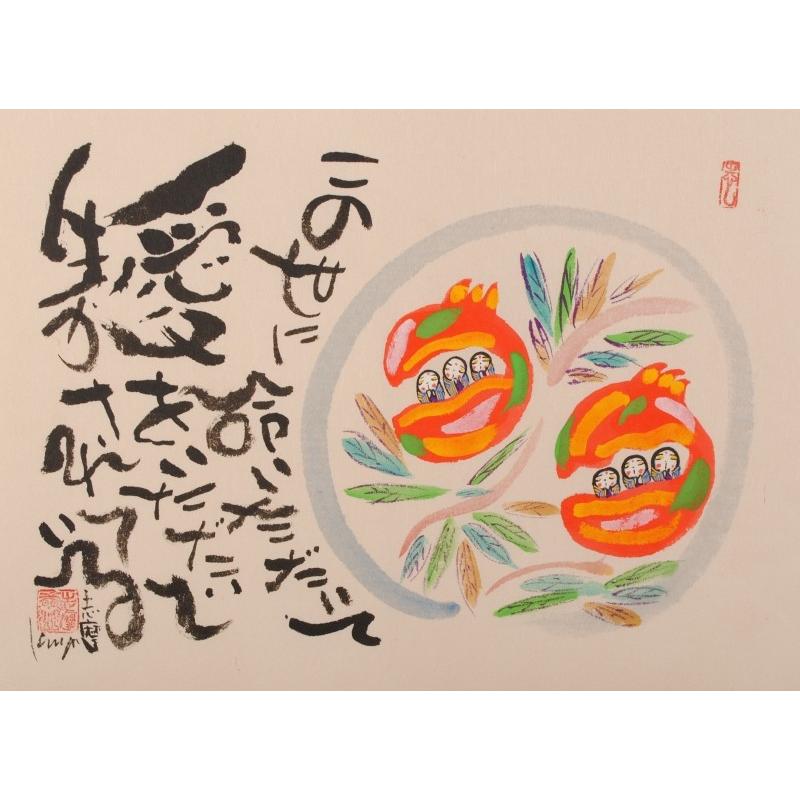 この世に
命いただいて
愛をいただいて
生かされている